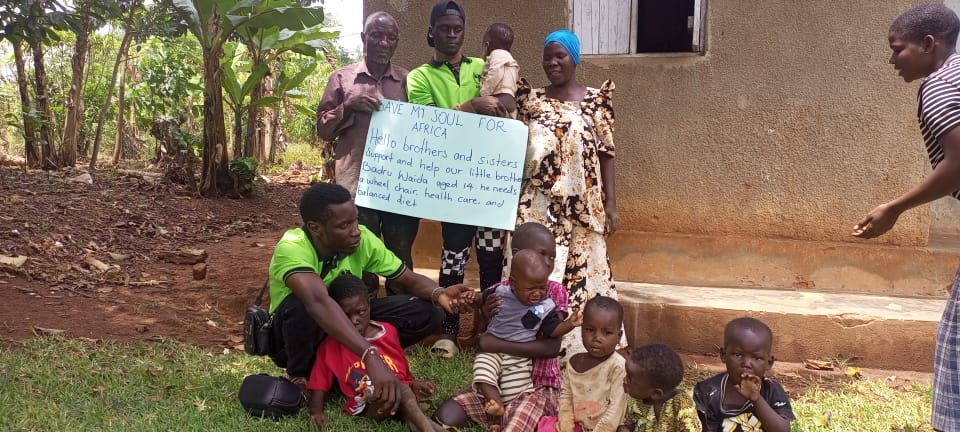 SAVE MY SOUL FOR
AFRICA
Hello brothers and sisters
Support and help our little brother
Badru Waida aged 14. he needs
a wheel chair, health care, and
balanced diet